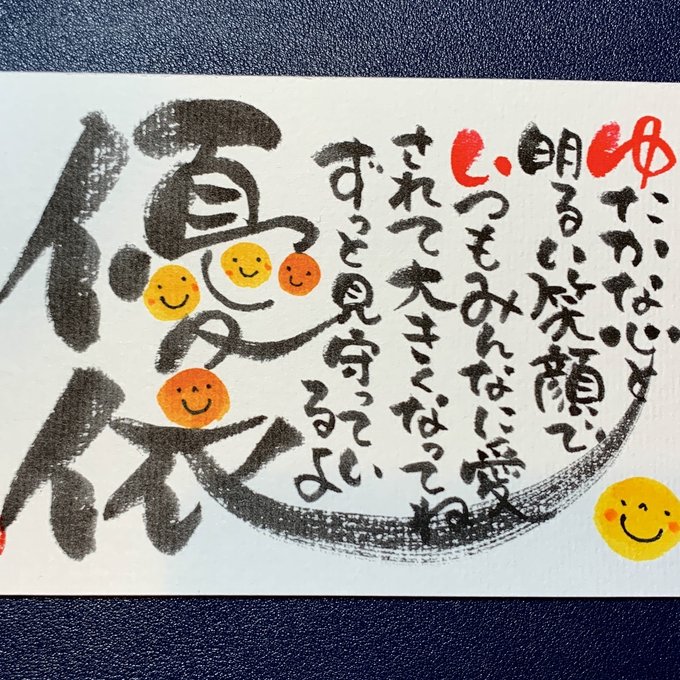 ゆたかな心と
明るい笑顔で、
いつもみんなに愛
されて大きくなってね
ずっと見守ってい
るよ
優依